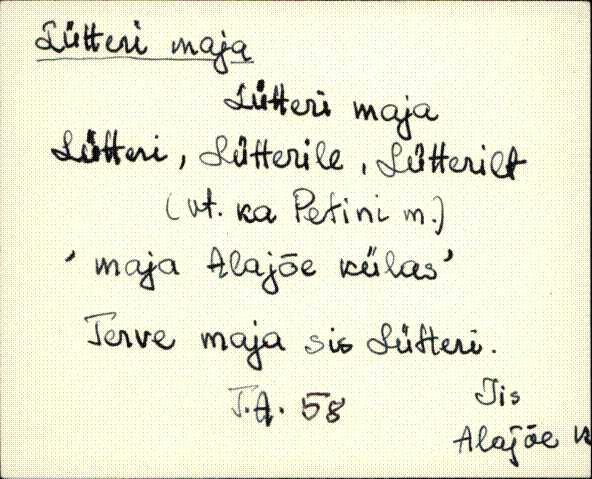 Lütteri maja
Lütteri maja
Lütteri, Lütterile, Lütterilt
(vt. ka Petini m.)
'maja Alajõe külas'
Terve maja sis Lütteri.
T.A. 58
Iis
Alajõe k